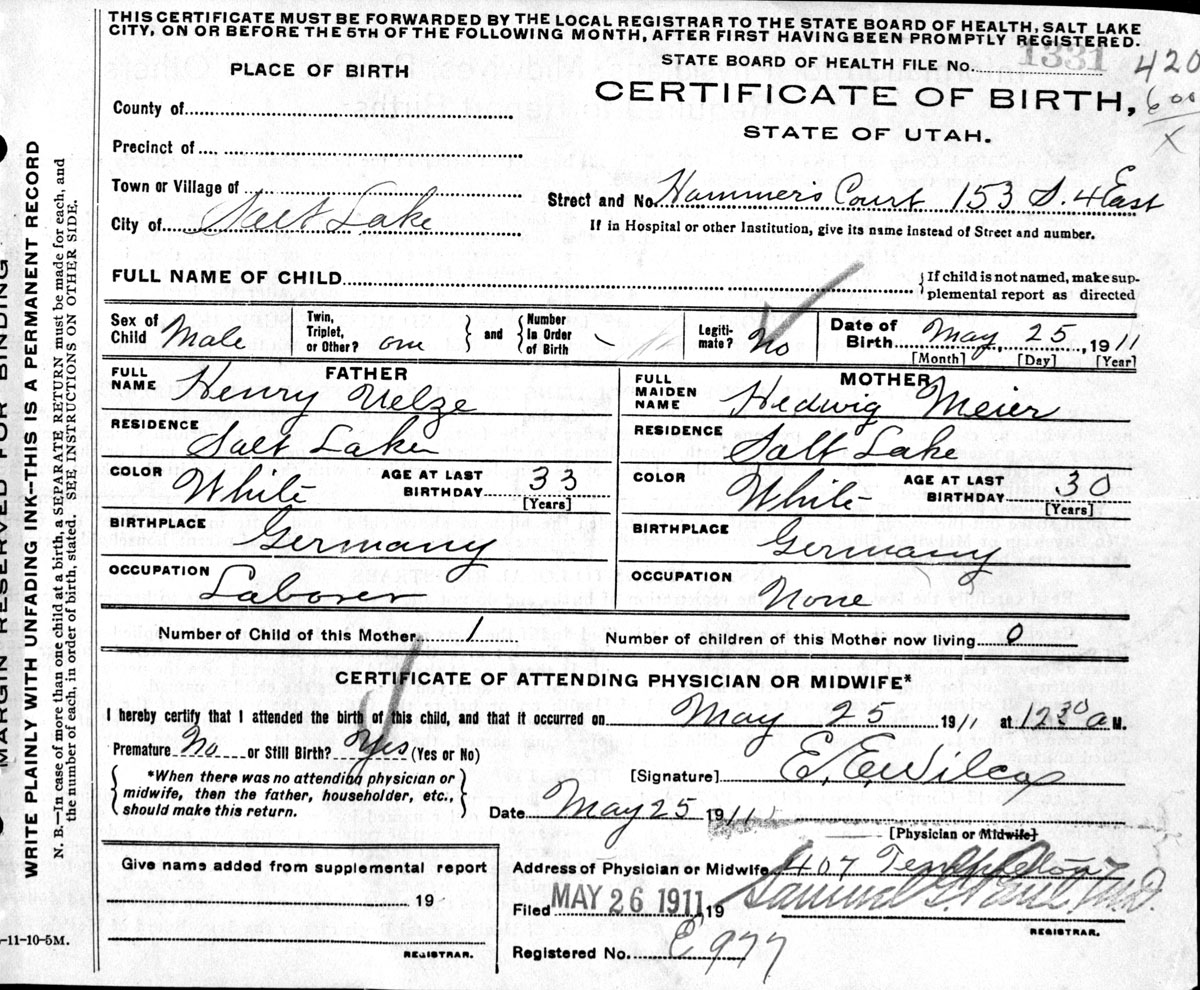 THIS CERTIFICATE MUST BE FORWARDED BY THE LOCAL REGISTRAR TO THE STATE BOARD OF HEALTH, SALT LAKE
CITY, ON OR BEFORE THE 5TH OF THE FOLLOWING MONTH, AFTER FIRST HAVING BEEN PROMPTLY REGISTERED.
PLACE OF BIRTH
STATE BOARD OF HEALTH FILE No. 1331
420
600
X
CERTIFICATE OF BIRTH,
STATE OF UTAH.
County of
Precinct of
Town or Village of
City of Salt Lake
Street and No. Hammer's Court 153 S. 4 East
If in Hospital or other Institution, give its name instead of Street and number.
FULL NAME OF CHILD
{ If child is not named, make sup-
plemental report as directed
Sex of Child Male
Twin, Triplet, or Other? one } and { Number In Order of Birth -
Legiti-mate? No
Date of Birth May 25, 1911
[Month] [Day] [Year]
FATHER
FULL NAME Henry Uelze
RESIDENCE Salt Lake
COLOR White AGE AT LAST BIRTHDAY 33 [Years]
BIRTHPLACE Germany
OCCUPATION Laborer
MOTHER
FULL MAIDEN NAME Hedwig Meier
RESIDENCE Salt Lake
COLOR White AGE AT LAST BIRTHDAY 30 [Years]
BIRTHPLACE Germany
OCCUPATION None
Number of Child of this Mother 1 Number of children of this Mother now living 0
CERTIFICATE OF ATTENDING PHYSICIAN OR MIDWIFE*
I hereby certify that I attended the birth of this child, and that it occurred on May 25 1911 at 12 30 a M.
Premature No or Still Birth? Yes (Yes or No)
{ *When there was no attending physician or
midwife, then the father, householder, etc.,
should make this return. }
[Signature] E. E. Wilcox
Date May 25 1911
[Physician or Midwife]
Give name added from supplemental report
19
REGISTRAR.
Address of Physician or Midwife 407 Templeton
Filed MAY 26 1911 19 Samuel G. Paul, M.D.
REGISTRAR.
Registered No. E 977
MARGIN RESERVED FOR BINDING
WRITE PLAINLY WITH UNFADING INK--THIS IS A PERMANENT RECORD
N. B.—In case of more than one child at a birth, a SEPARATE RETURN must be made for each, and
the number of each, in order of birth, stated. SEE INSTRUCTIONS ON OTHER SIDE.
-11-10-5M.